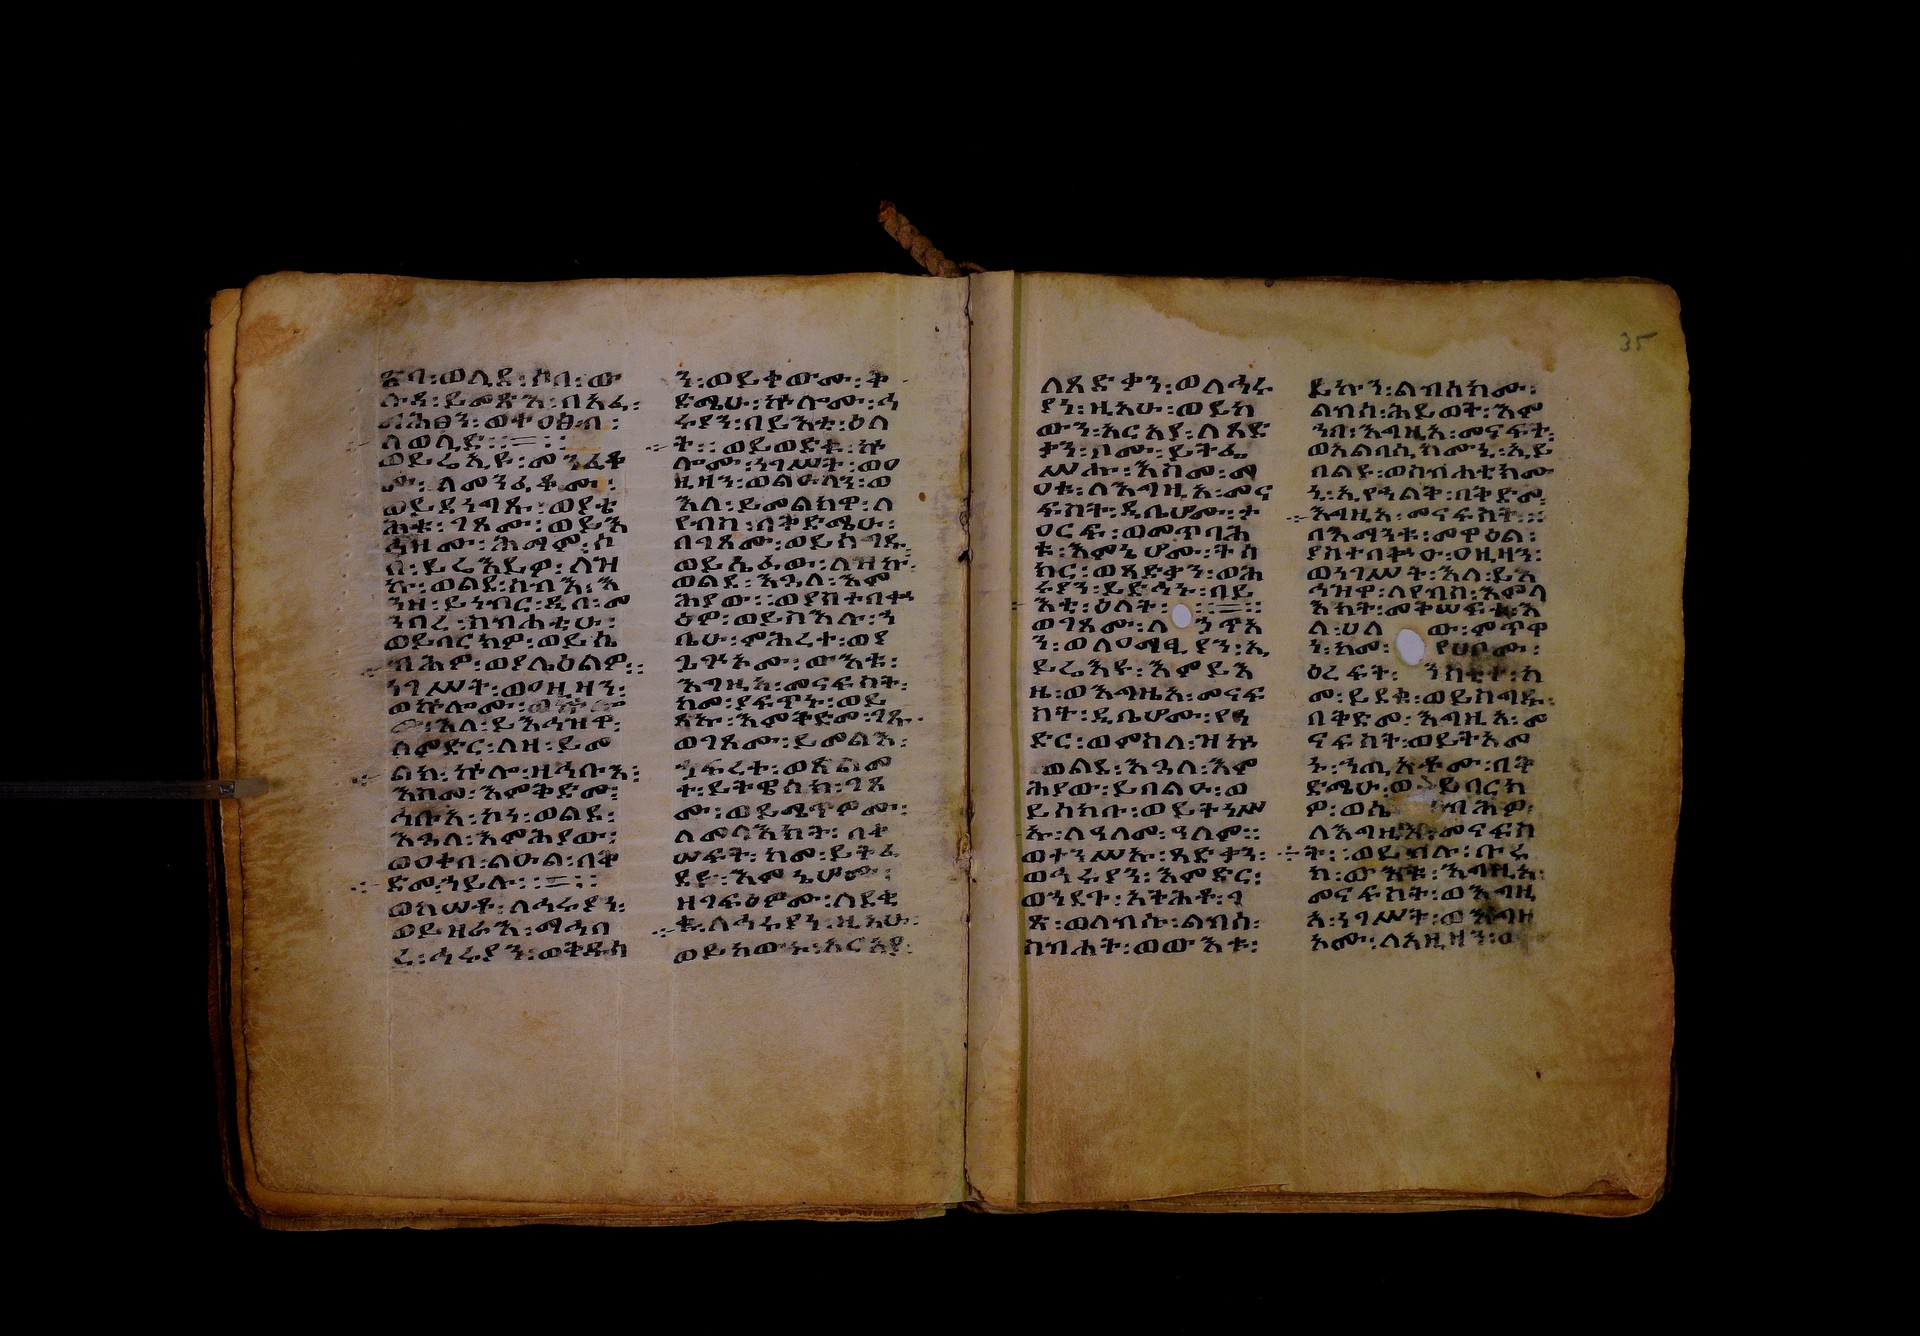 ጽባ፡ወሊድ፡ሶበ፡ው
ሉዳ፡ይመጽእ፡በአፈ፡
ማሕፀን፡ወተዐፅብ፡
ለወሊድ።=።
ወይሬእዩ፡መንፈቆ
ሙ፡ለመንፈቆሙ፡
ወይደነግጹ፡ወያቴ
ሕቱ፡ገጾሙ፡ወይእ
ኅዞሙ፡ሕማም፡ሶ
በ፡ይሬእይዎ፡ለዝ
ኩ፡ወልደ፡ብእሲ፡እ
ንዘ፡ይነብር፡ዲበ፡መ
ንበረ፡ስብሐቲሁ፡
ወይባርክዎ፡ወይሴ
ብሕዎ፡ወያሌዕልዎ።
ነገሥት፡ወዐዚዛን፡
ወኵሎሙ፡
እለ፡ይእኅዝዋ፡
ለምድር፡ለዘ፡ይመ
ልክ፡ኵሎ፡ዘኅቡእ፡
እስመ፡እምቅድሙ፡
ኅቡእ፡ኮነ፡ወልደ፡
እጓለ፡እምሕያው፡
ወዐቀበ፡ልዑል፡በቅ
ድመ፡ኀይሉ።=።
ወከሠቶ፡ለኅሩያን፡
ወይዘራእ፡ማኅበ
ረ፡ኅሩያን፡ወቅዱሳ
ን፡ወይቀውሙ፡ቅ
ድሜሁ፡ኵሎሙ፡ኅ
ሩያን፡በይእቲ፡ዕለ
ት።ወይወድቁ፡ኵ
ሎሙ፡ነገሥት፡ወዐ
ዚዛን፡ወልዑላን፡ወ
እለ፡ይመልክዋ፡ለ
የብስ፡በቅድሜሁ፡
በገጾሙ፡ወይሰግዱ፡
ወይሴፈው፡ለዝኩ፡
ወልደ፡እጓለ፡እም
ሕያው።ወያስተበቍ
ዕዎ፡ወይስእሉ፡እ
ቤሁ፡ምሕረተ፡ወያ
ጌጕኦሙ፡ውእቱ፡
እግዚአ፡መናፍስት፡
ከመ፡ያፍጥኑ፡ወይ
ጻኡ፡እምቅድመ፡ገጹ፡
ወገጾሙ፡ይመልእ፡
ኀፍረተ፡ወጽልመ
ተ፡ይትዌስክ፡ገጾ
ሙ፡ወይሜጥዎሙ፡
ለመላእክት፡በቀ
ሠፍት፡ከመ፡ይትፈ
ደዩ፡እምኔሆሙ፡
ዘገፍዕዎሙ፡ለደቂ
ቁ፡ለኅሩያን፡ዚአሁ፡
ወይከውኑ፡አርአያ፡
ለጻድቃን፡ወለኅሩ
ያን፡ዚአሁ፡ወይከ
ውን፡አርአያ፡ለጻድ
ቃን፡ቦሙ፡ይትፌ
ሥሑ፡እስመ፡መ
ዐቱ፡ለእግዚአ፡መና
ፍስት፡ዲቤሆሙ፡ተ
ዐርፍ፡ወመጥባሕ
ቱ፡እምኔሆሙ፡ትሰ
ክር፡ወጻድቃን፡ወኅ
ሩያን፡ይድኅኑ፡በይ
እቲ፡ዕለት፡።=።
ወገጾሙ፡ለኃጥአ
ን፡ወለዐማፂያን፡ኢ
ይሬእዩ፡እምይእ
ዜ፡ወእግዚአ፡መናፍ
ስት፡ዲቤሆሙ፡የኀ
ድር፡ወምስለ፡ዝኩ
ወልደ፡እጓለ፡እም
ሕያው፡ይበልዑ፡ወ
ይሰክቡ፡ወይትነሥ
ኡ፡ለዓለመ፡ዓለም።
ወተንሥኡ፡ጻድቃን፡
ወኅሩያን፡እምድር፡
ወኀደጉ፡አትሕቶ፡ገ
ጽ፡ወለብሱ፡ልብሰ፡
ስብሐት፡ወውእቱ፡
ይኩን፡ልብስክሙ፡
ልብሰ፡ሕይወት፡እም
ኀበ፡እግዚአ፡መናፍስት፡
ወአልባሲክሙኒ፡ኢይ
በልዩ፡ወስብሐቲክሙ
ኒ፡ኢየኀልቅ፡በቅድመ፡
እግዚአ፡መናፍስት።
በእማንቱ፡መዋዕል፡
ያስተበቍዑ፡ዐዚዛን፡
ወነገሥት፡እለ፡ይእ
ኅዝዋ፡ለየብስ፡እምላ
እክት፡መቅሠፍቱ፡እ
ለ፡ሀለው፡ምጥዋ
ን፡ከመ፡የሀቦሙ፡
ዕረፍት፡ንስቲተ፡ከ
መ፡ይደቁ፡ወይሰግዱ፡
በቅድመ፡እግዚአ፡መ
ናፍስት፡ወይትአመ
ኑ፡ኀጢአቶሙ፡በቅ
ድሜሁ፡ወይባርክ
ዎ፡ወሴብሕዎ፡
ለእግዚአ፡መናፍስ
ት።ወይብሉ፡ቡሩ
ክ፡ውእቱ፡እግዚአ፡
መናፍስት፡ወእግዚ
አ፡ነገሥት፡ወእግዚ
አሙ፡ለአዚዛን፡ወ
35